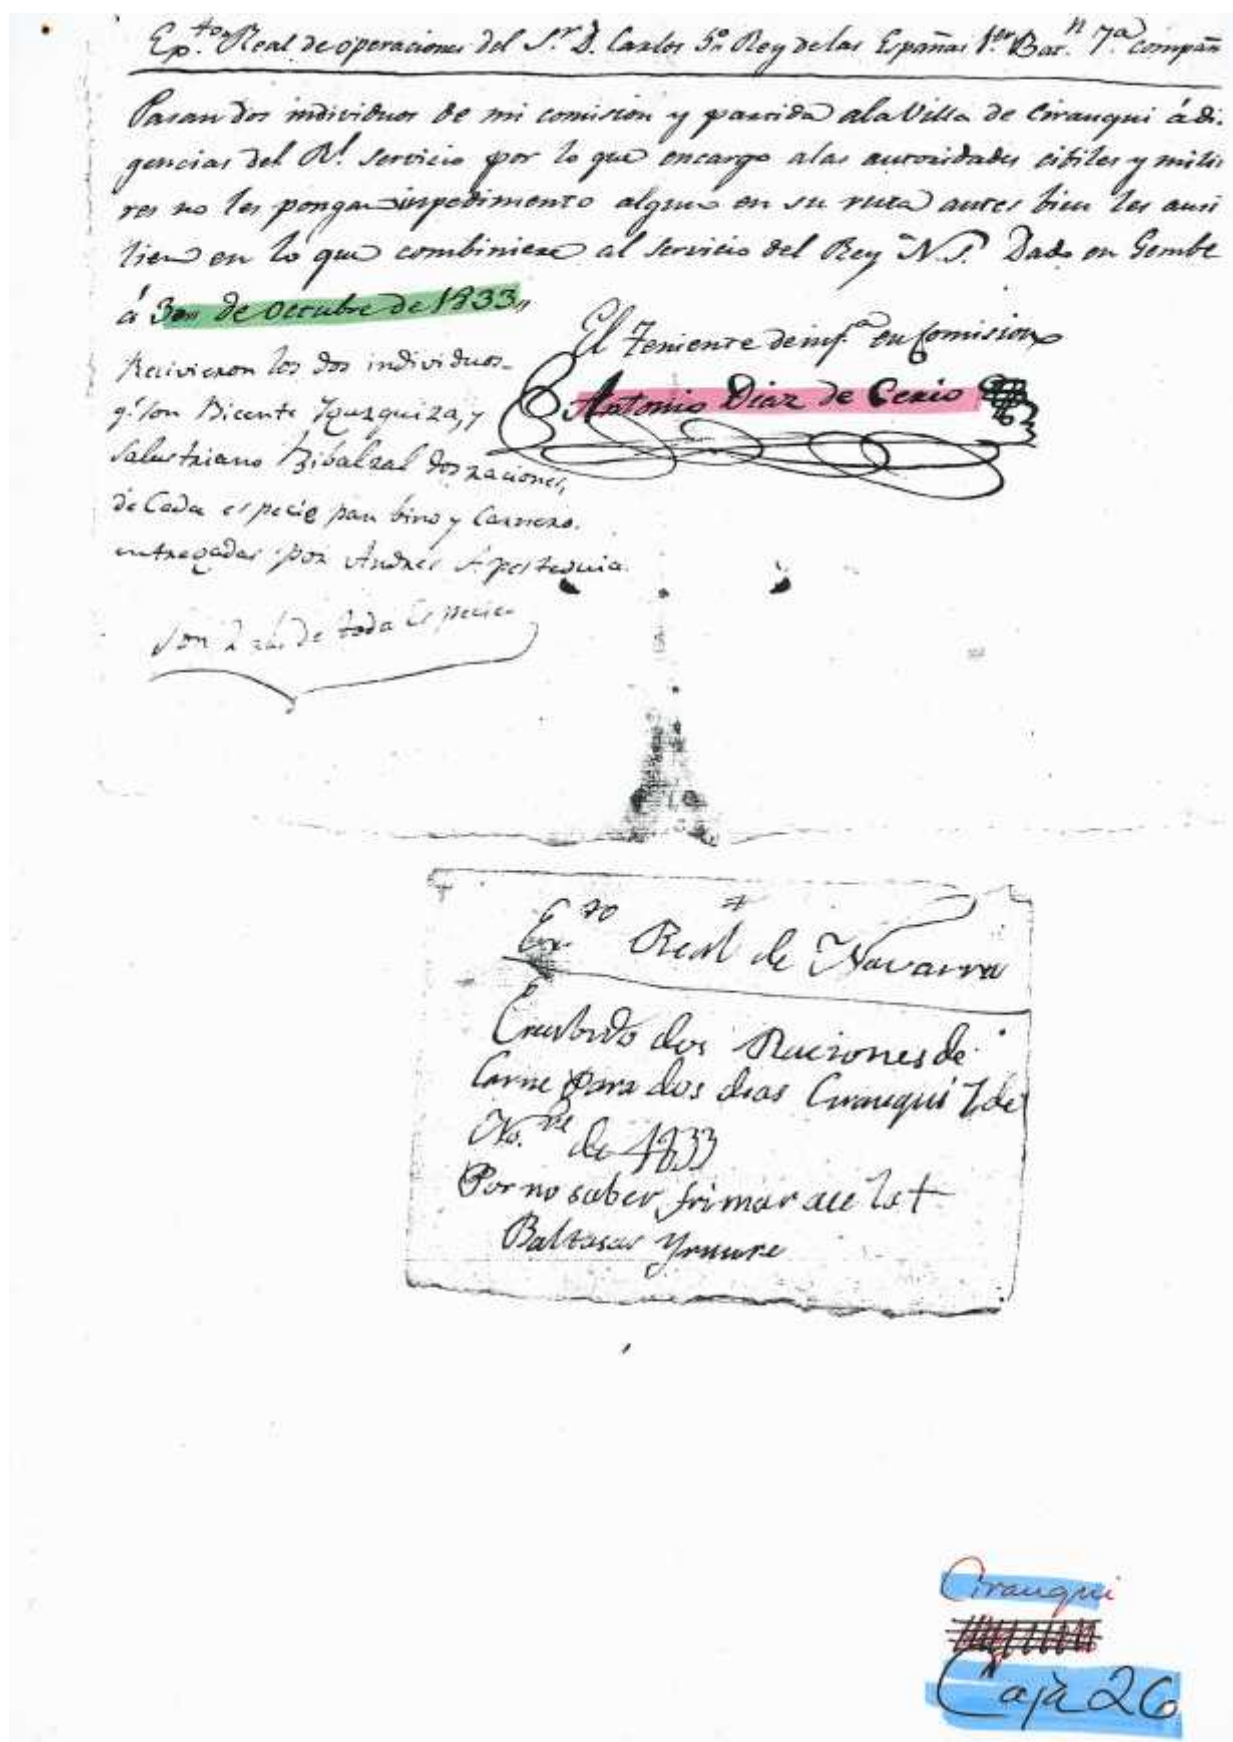 Exp.to Real de operaciones del S.r D. Carlos 5.o Rey de las Españas 1.er Bat.n 7.a compañ
Pasan dos individuos de mi comision y partida ala Villa de Cirauqui á di-
gencias del R.l servicio por lo que encargo alas autoridades cibiles y milita
res no les pongan inpedimento alguno en su ruta antes bien les ausi
lien en lo que combiniere al servicio del Rey N.S. Dado en Gembe
á 30 de Octubre de 1833
El Teniente de inf.a en Comision
Antonio Diaz de Cerio
Recivieron los dos individuos
q.e son Bicente Yguzquiza, y
Salustriano Bibalzal dos raciones,
de Cada especie pan bino y Carnero.
entregadas por Andres Apesteguia.
Son 2 de toda Especie
Ex.to Real de Navarra
dos Raciones de
Carne para dos dias Cirauqui 7 de
No.bre de 1833
Por no saber frimar ace la +
Baltasar
Cirauqui
Caja 26